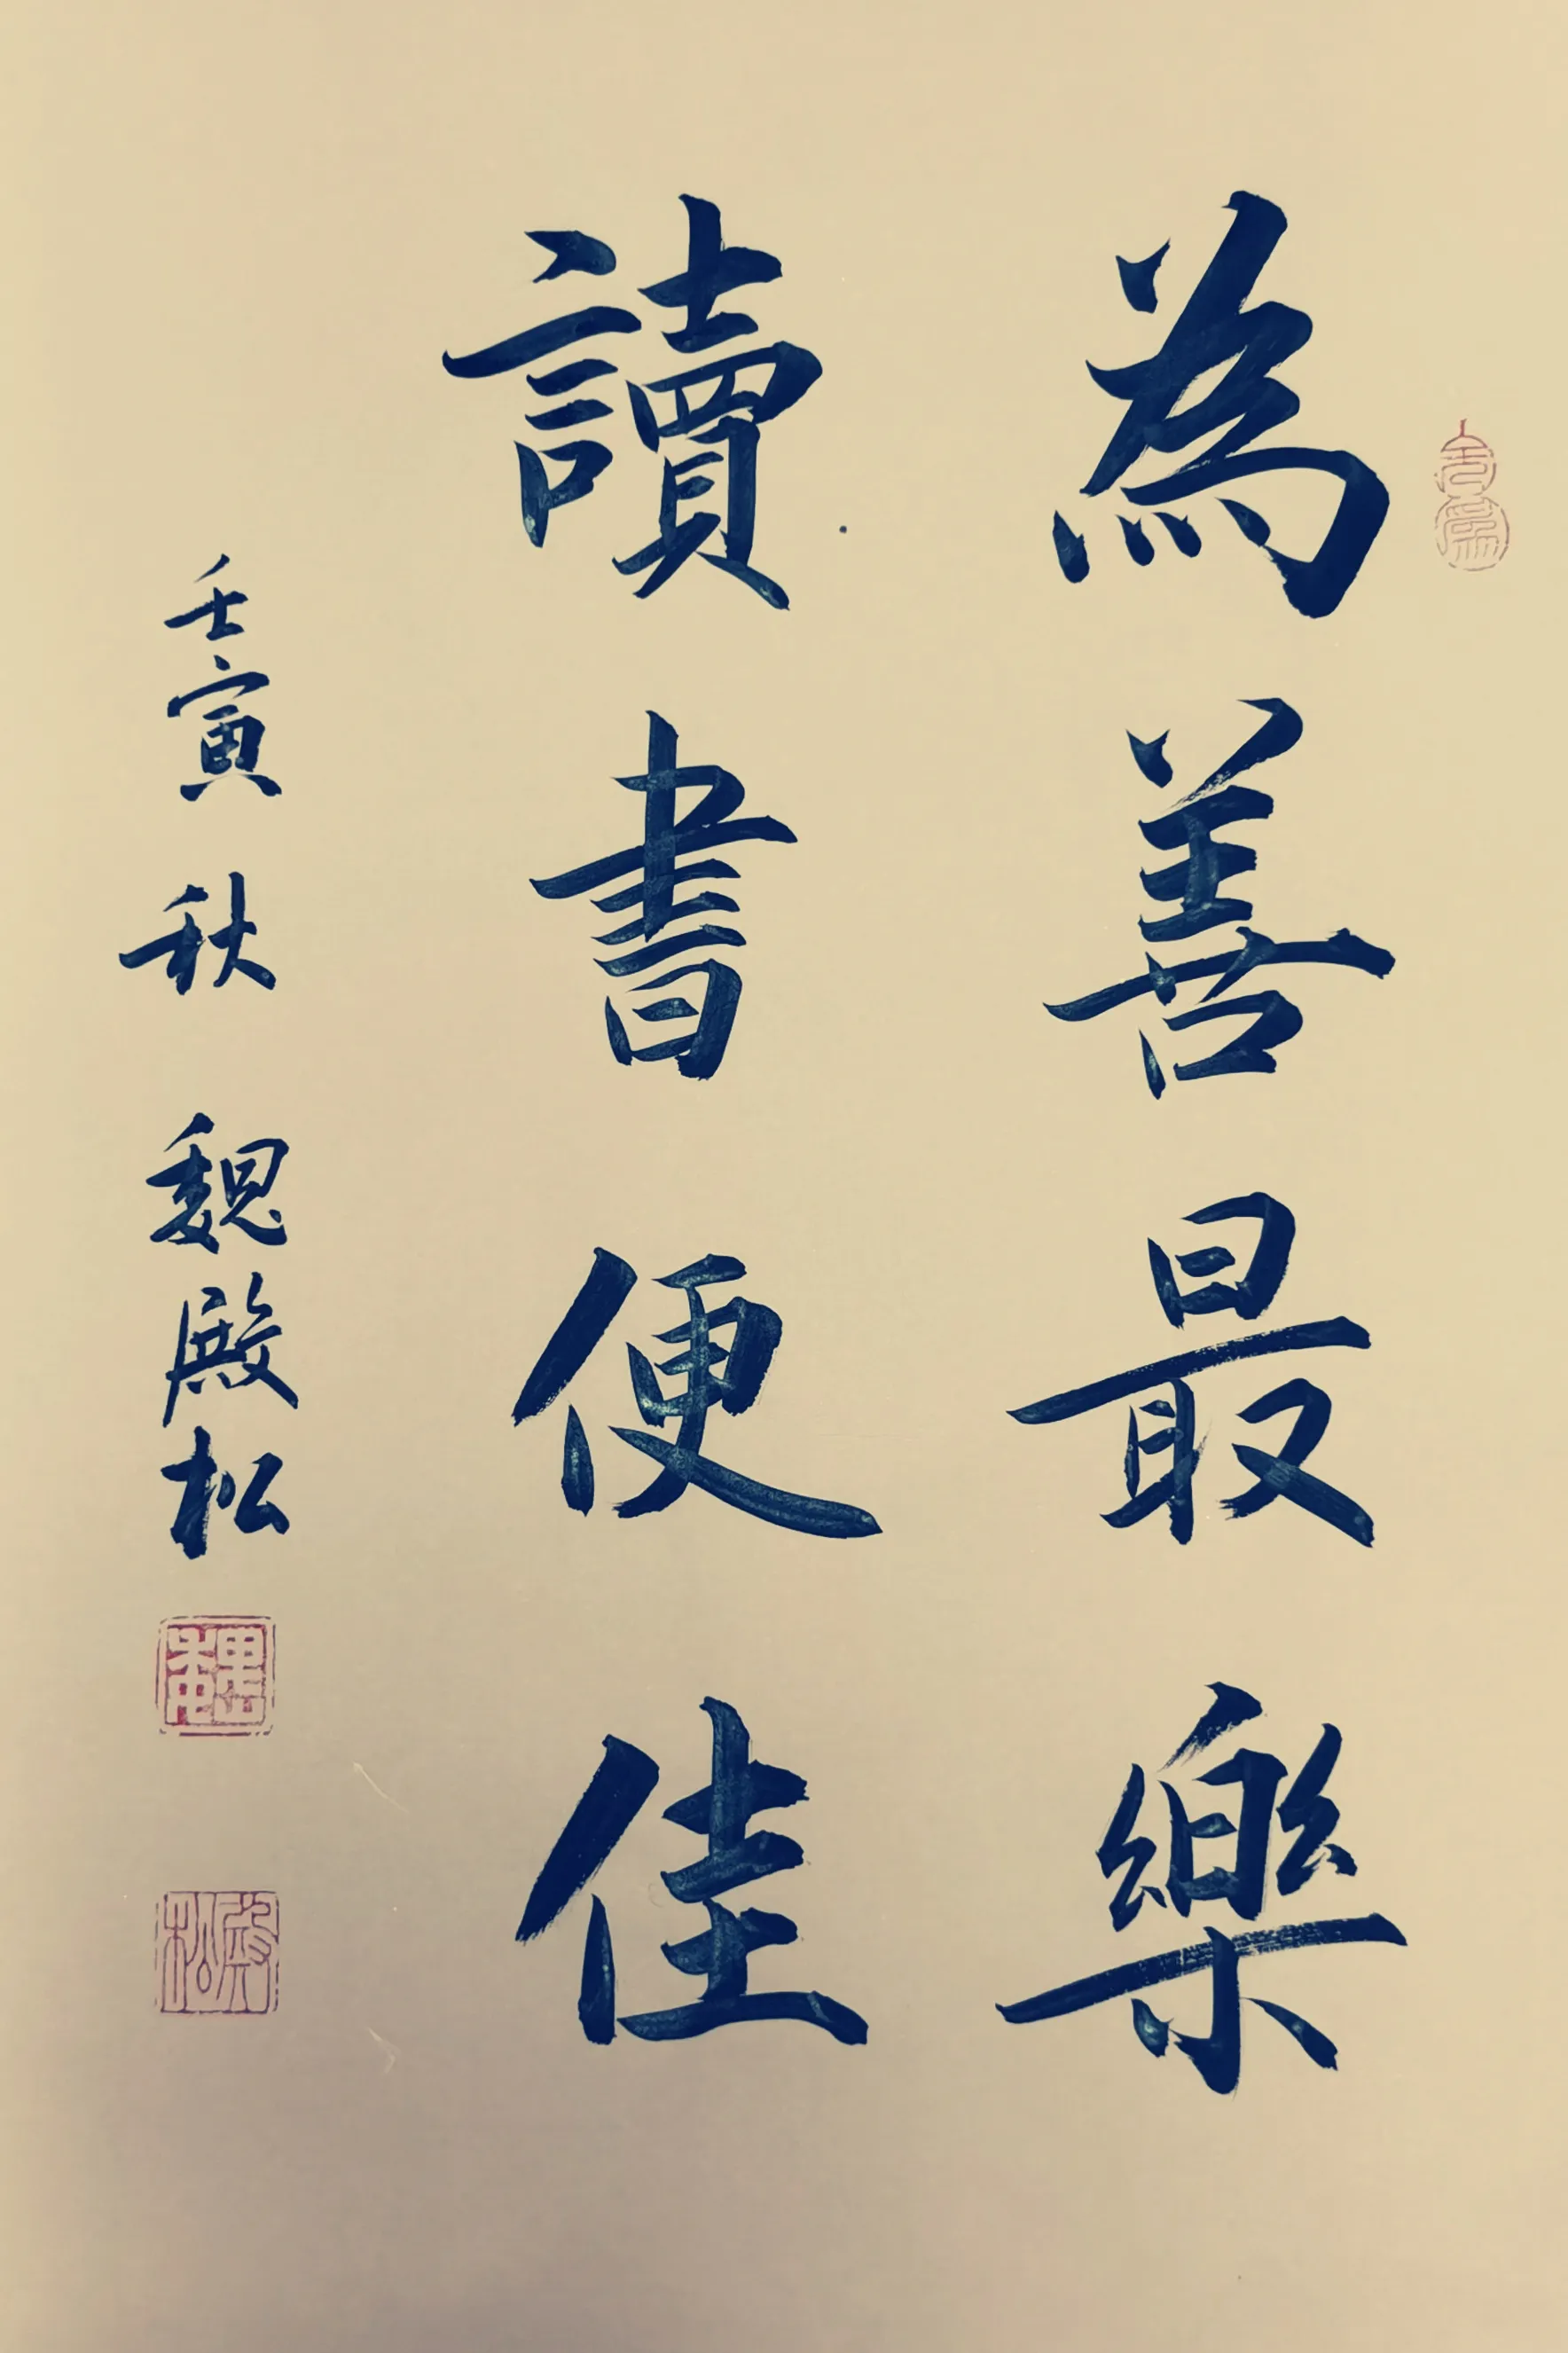 為善最樂
讀書便佳
壬寅秋魏殿松
殿松